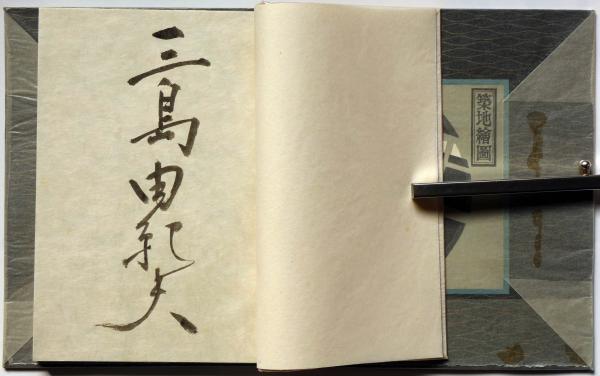 三島由紀夫
築地繪圖